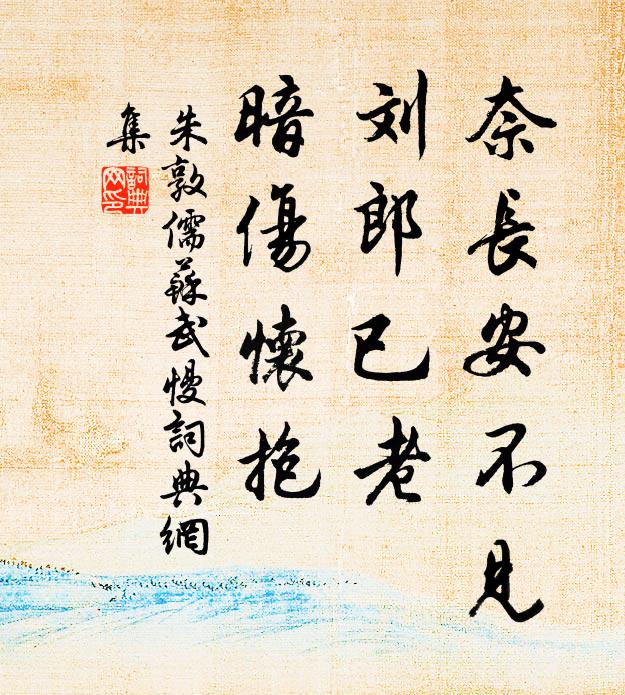 奈長安不見
刘郎已老
暗傷懷抱
朱敦儒蘇武慢詞典網
集
詞典網印